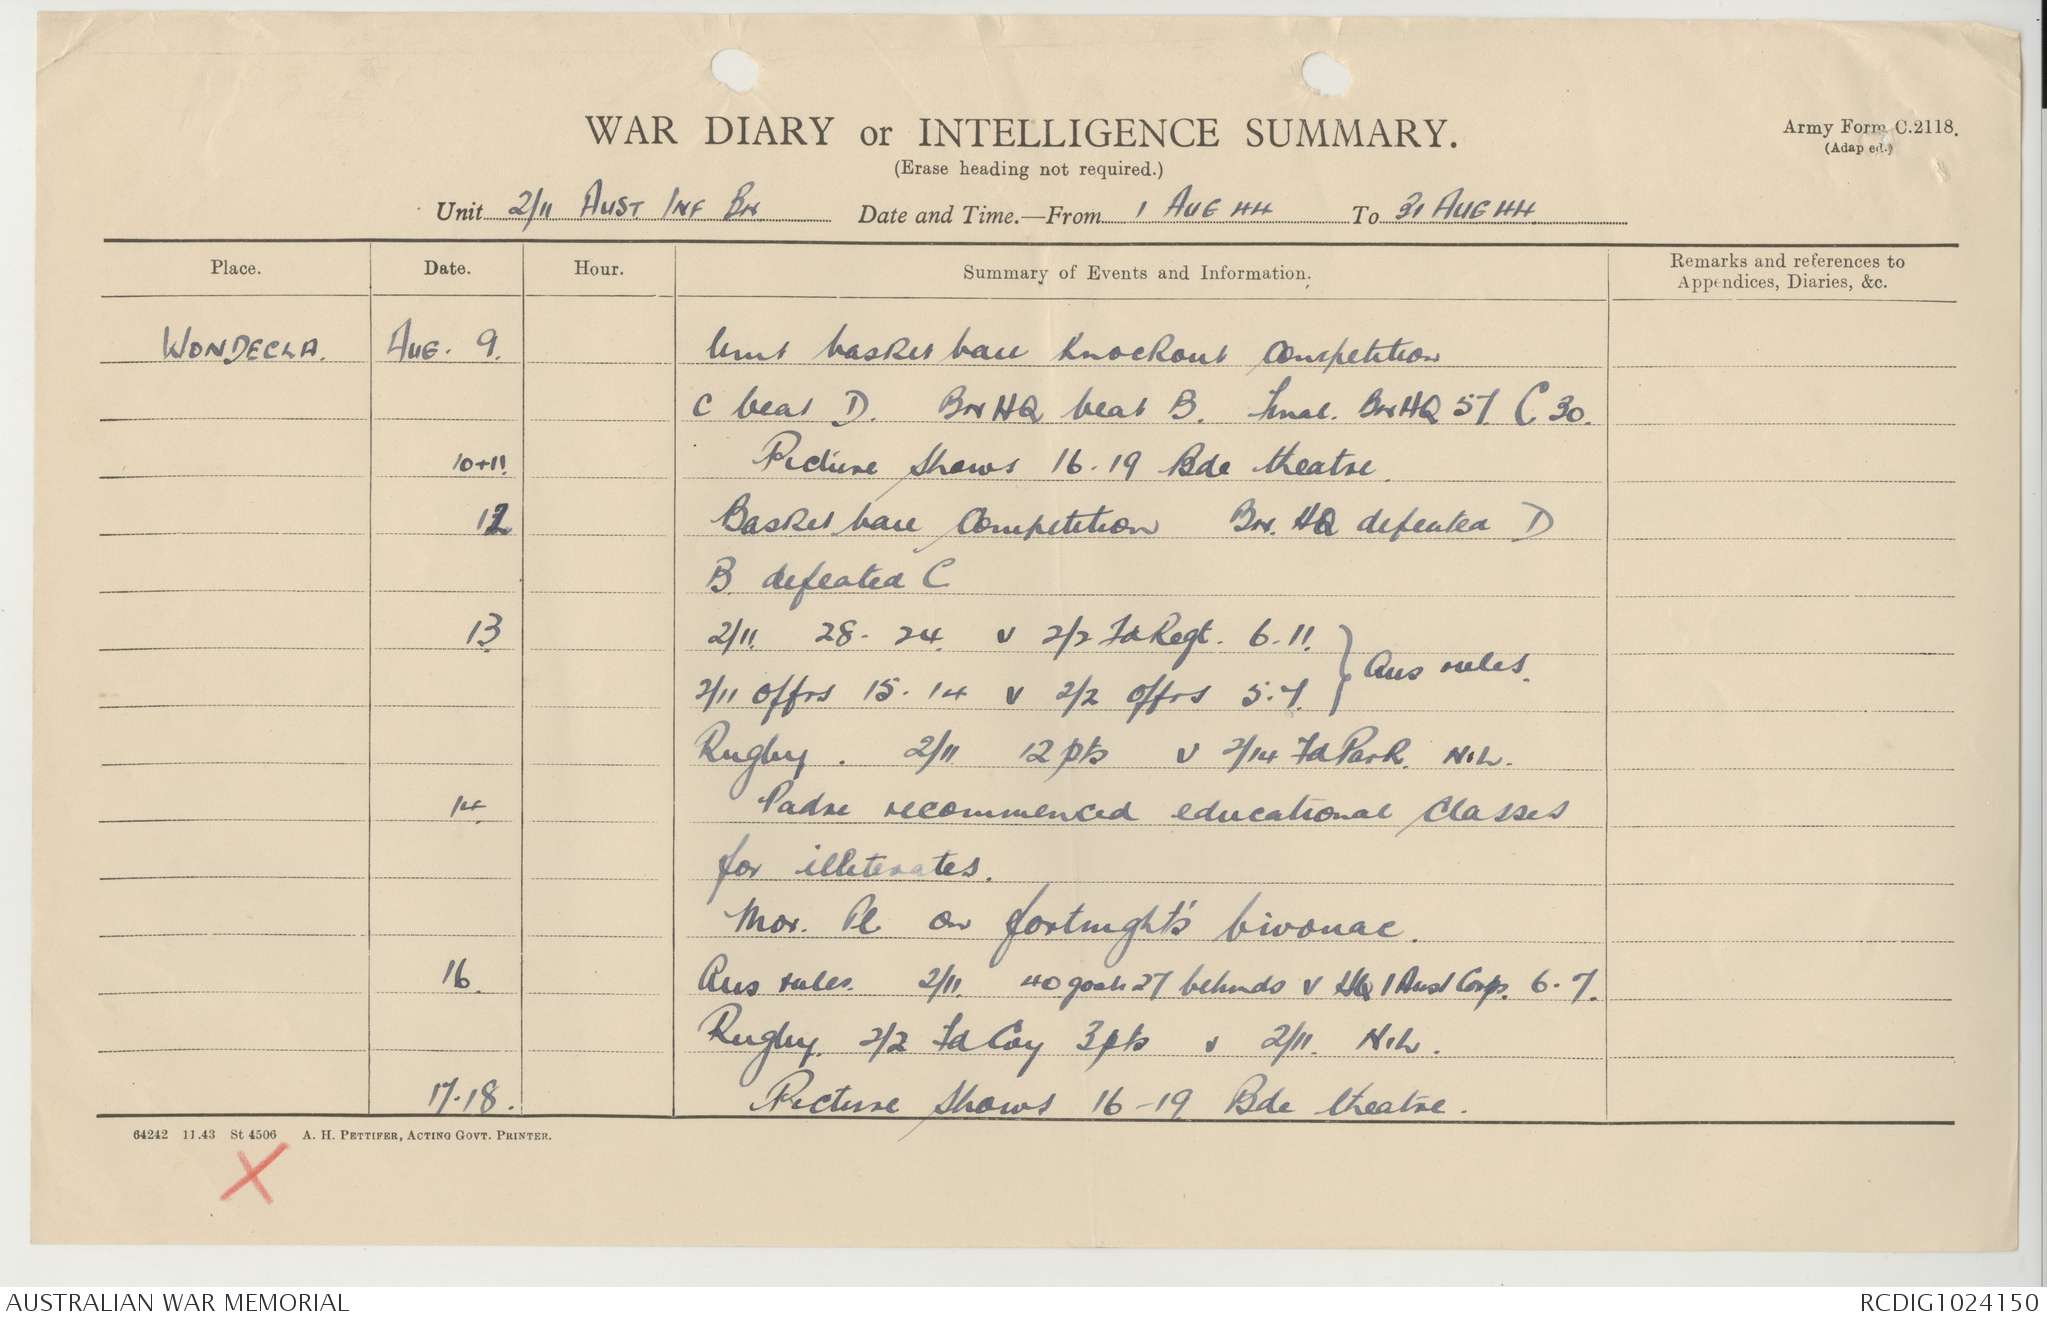 WAR DIARY or INTELLIGENCE SUMMARY.
Army Form C.2118.
(Erase heading not required.)
(Adapted.)
Unit 2/11 AUST INF BN Date and Time.—From 1 AUG 44 To 31 AUG 44
Place. Date. Hour. Summary of Events and Information. Remarks and references to
Appendices, Diaries, &c.
WONDECLA. AUG. 9. Unit basket ball knockout competition
C beat D. Bn HQ beat B. Final. Bn HQ 57. C 30.
10+11. Picture shows 16-19 Bde theatre.
12 Basket ball competition Bn. HQ defeated D
B defeated C
13 2/11 28-24 v 2/2 Fd Regt. 6-11.
2/11 offrs 15-14 v 2/2 offrs 5-7. } Aus rules.
Rugby. 2/11 12 pts v 2/14 Fd Park. NIL.
14. Padre recommenced educational classes
for illiterates.
Mor. Pl on fortnight's bivouac.
16. Aus rules. 2/11. 40 goals 27 behinds v HQ 1 Aust Corps. 6-7.
Rugby. 2/2 Fd Coy 3 pts v 2/11. NIL.
17-18. Picture shows 16-19 Bde theatre.
64242 11.43 St 4506 A. H. PETTIFER, ACTING GOVT. PRINTER.
AUSTRALIAN WAR MEMORIAL RCDIG1024150